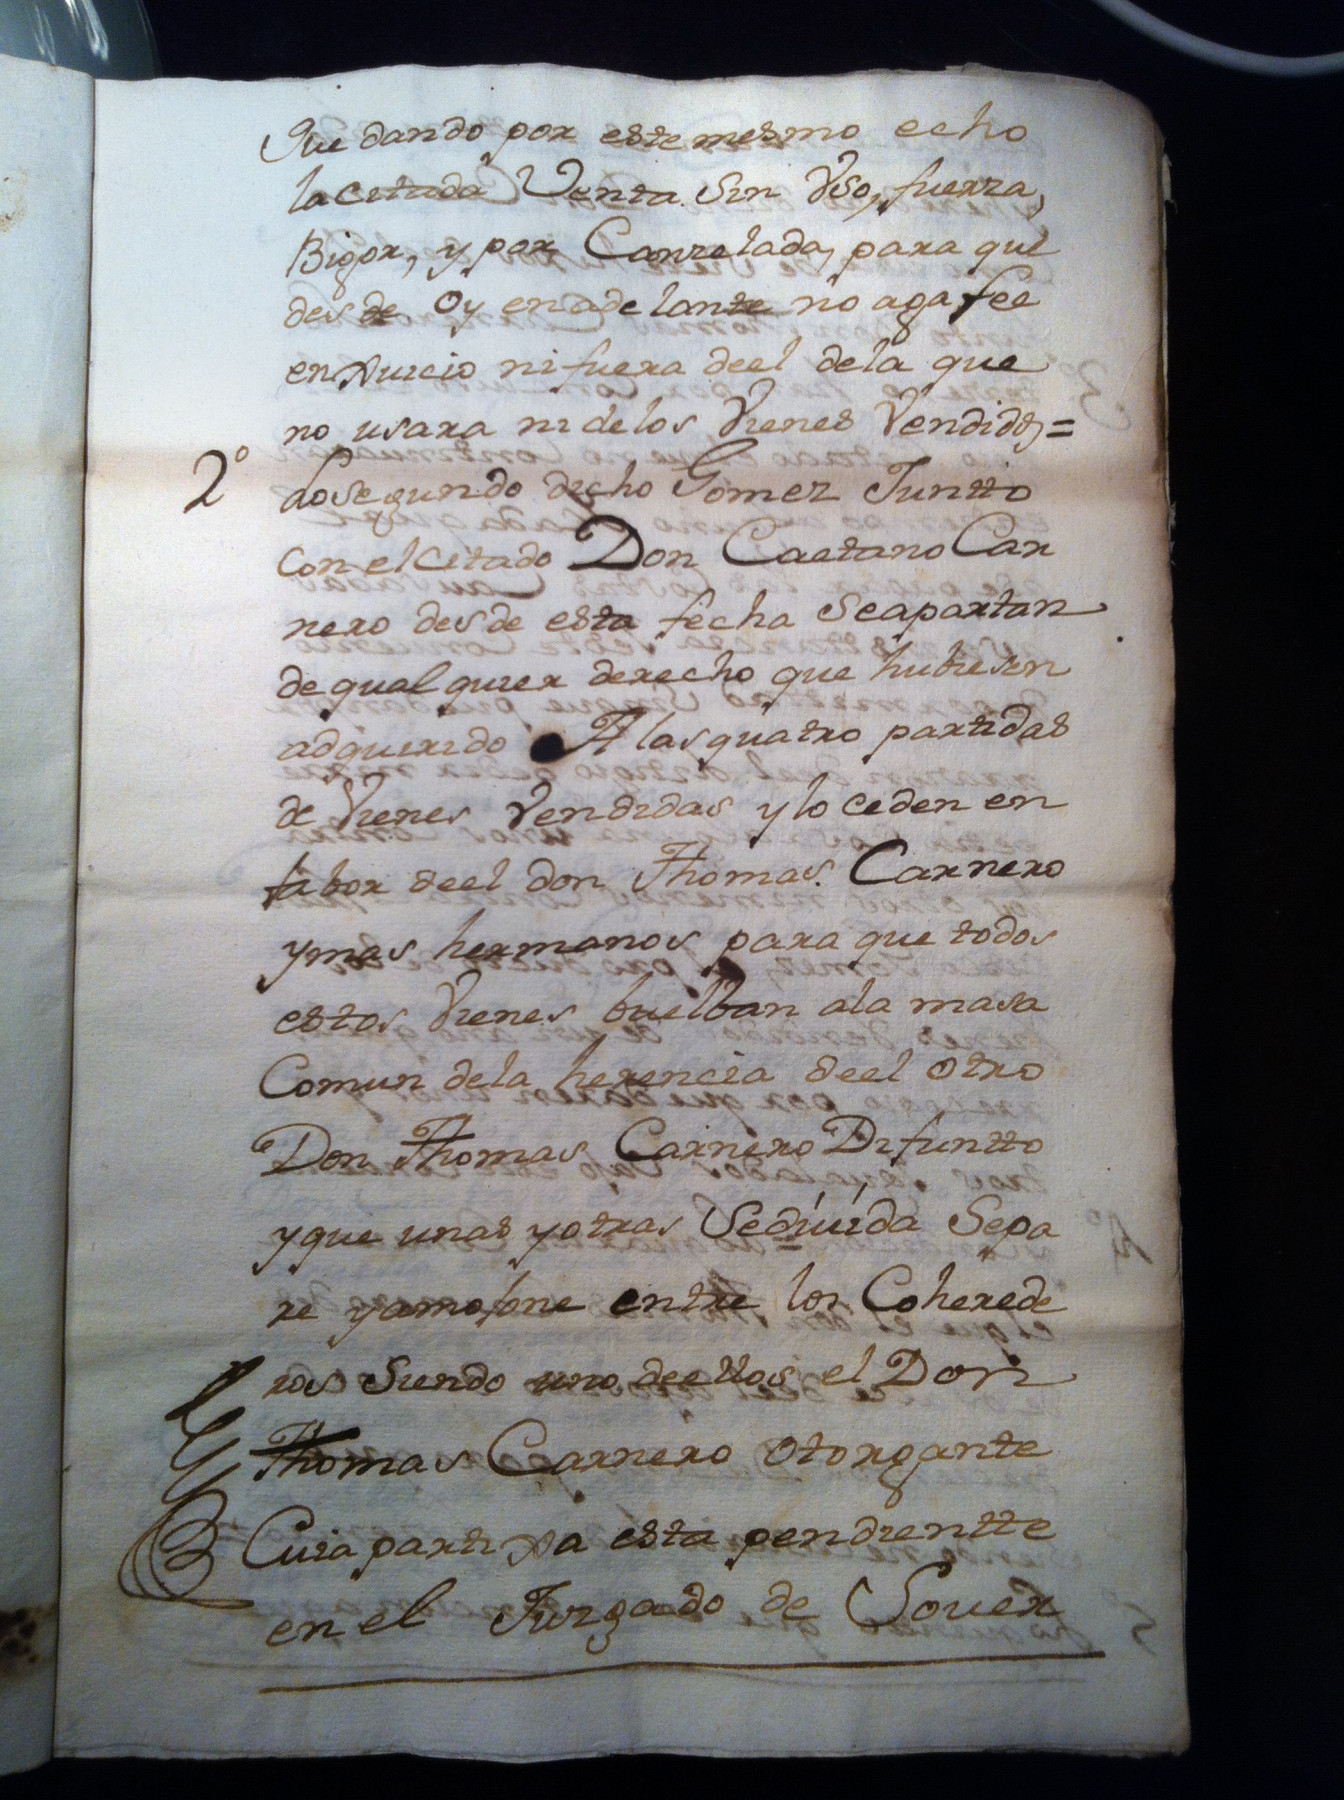 Que dando por este mesmo echo
la citada Venta sin Vso, fuerza,
Bigor, y por Canzelada, para que
desde Oy en adelante no aga fee
en Juicio ni fuera deel dela que
no usara ni delos Vienes Vendidos,=
2º Lo segundo dicho Gomez Juntto
con el citado Don Caetano Car
nero desde esta fecha se apartan
de qual quier derecho que hubiesen
adquirido A las quatro partidas
de Vienes Vendidas y lo ceden en
fabor deel don Thomas Carnero
y mas hermanos para que todos
estos Vienes buelban ala masa
Comun dela herencia deel otro
Don Thomas Carnero Difuntto
y que unas y otras Se diuida Sepa
re y amojone entre los Coherede
ros siendo uno deellos el Don
Thomas Carnero Otorgante
Cuia partixa esta pendientte
en el Juzgado de Souer